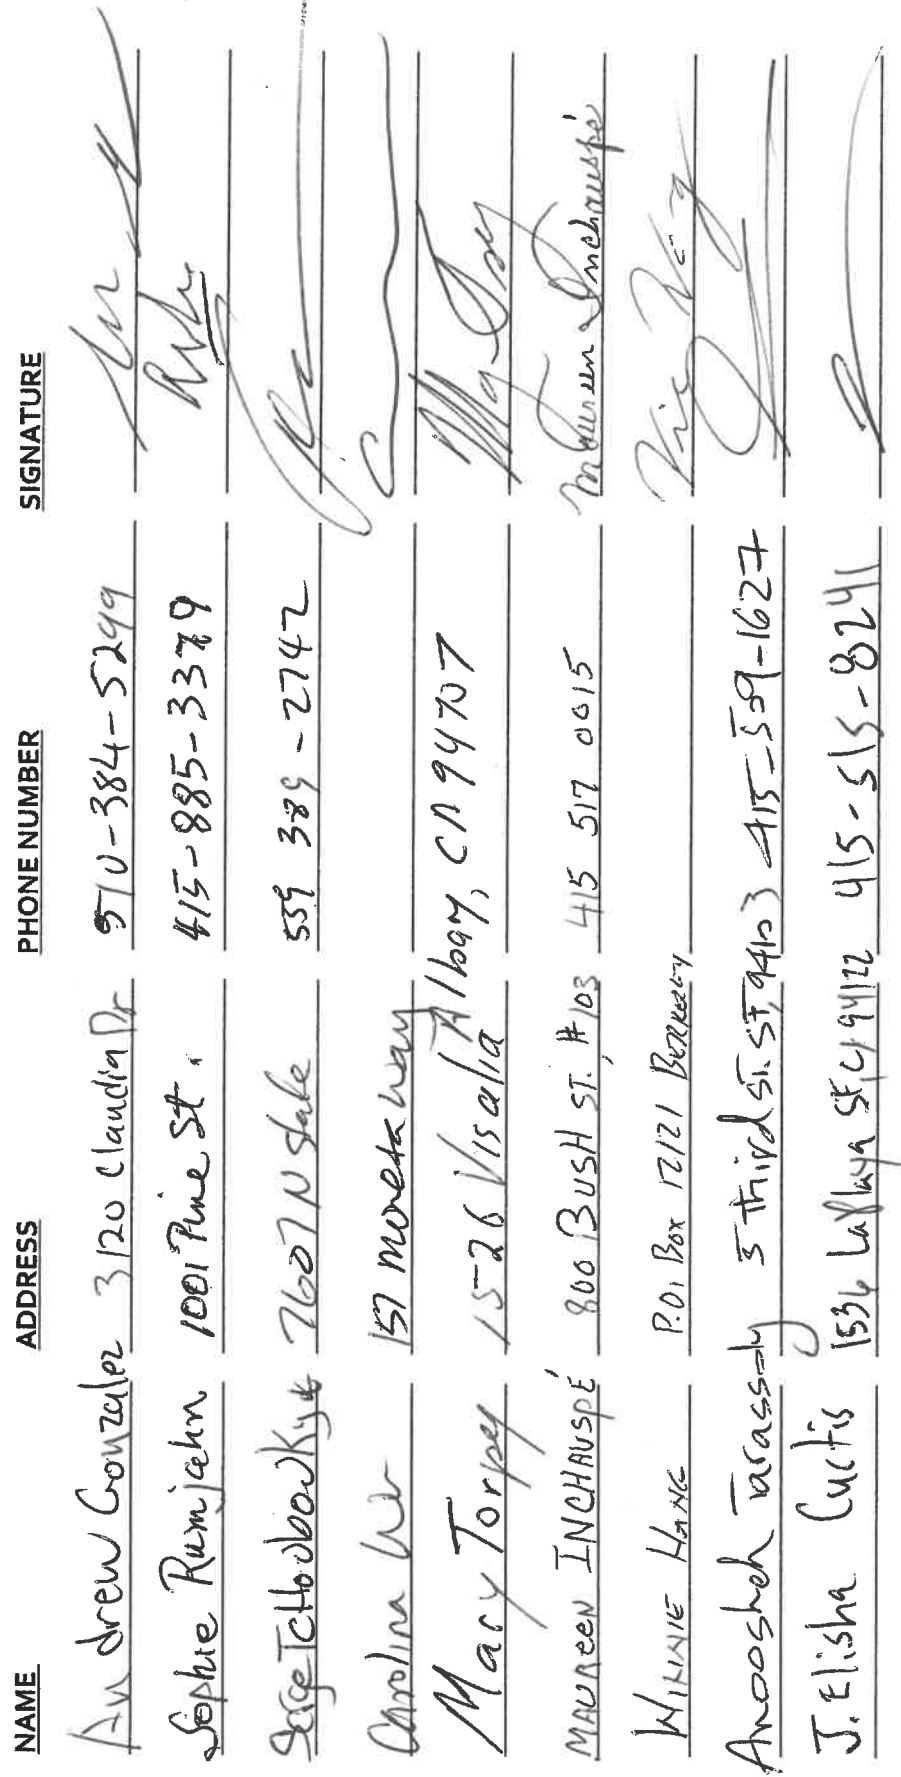 NAME ADDRESS PHONE NUMBER SIGNATURE
Andrew Gonzalez 3120 Claudia Dr 510-384-5299
Sophie Rumjahn 1001 Pine St. 415-885-3379
Serge Tchoubovkyk 7607 N State 559 389-2742
Carolina 157 Moneta way
Mary Torpey 1526 Visalia Albany, CA 94707
MAUREEN INCHAUSPÉ 800 BUSH ST., #103 415 517 0015 Maureen Inchauspé
WINNIE HANG P.O. Box 12121 BERKELEY
Anoosheh Tarassoly 3 Third St. SF, 94103 415-559-1627
J. Elisha Curtis 1536 La Playa SF, CA 94122 415-515-8241